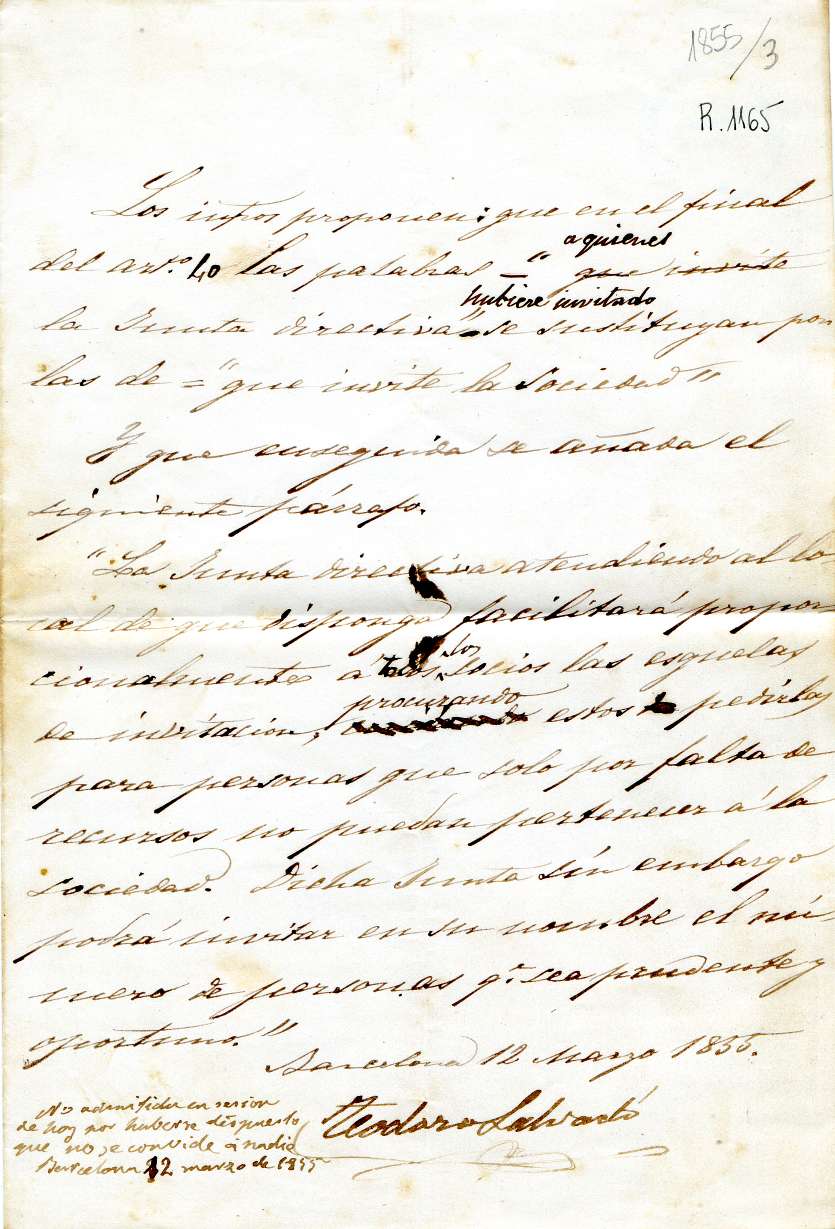 1855/3
R. 1165
Los infros proponen: que en el final
del arto. 40 las palabras = " que invite
aquienes
hubiere invitado
la Junta directiva" se sustituyan por
las de = "que invite la Sociedad"
Y que enseguida se añada el
siguiente párrafo.
"La Junta directiva atendiendo al lo-
cal de que disponga facilitará propor-
cionalmente a todos los socios las esquelas
de invitación, procurando estos pedirlas
para personas que solo por falta de
recursos no puedan pertenecer á la
sociedad. Dicha Junta sin embargo
podrá invitar en su nombre el nú-
mero de personas qe. sea prudente y
oportuno."
Barcelona 12 Marzo 1855.
Teodoro Salvadó
No admitida en sesion
de hoy por haberse dispuesto
que no se convide á nadie
Barcelona 12 marzo de 1855